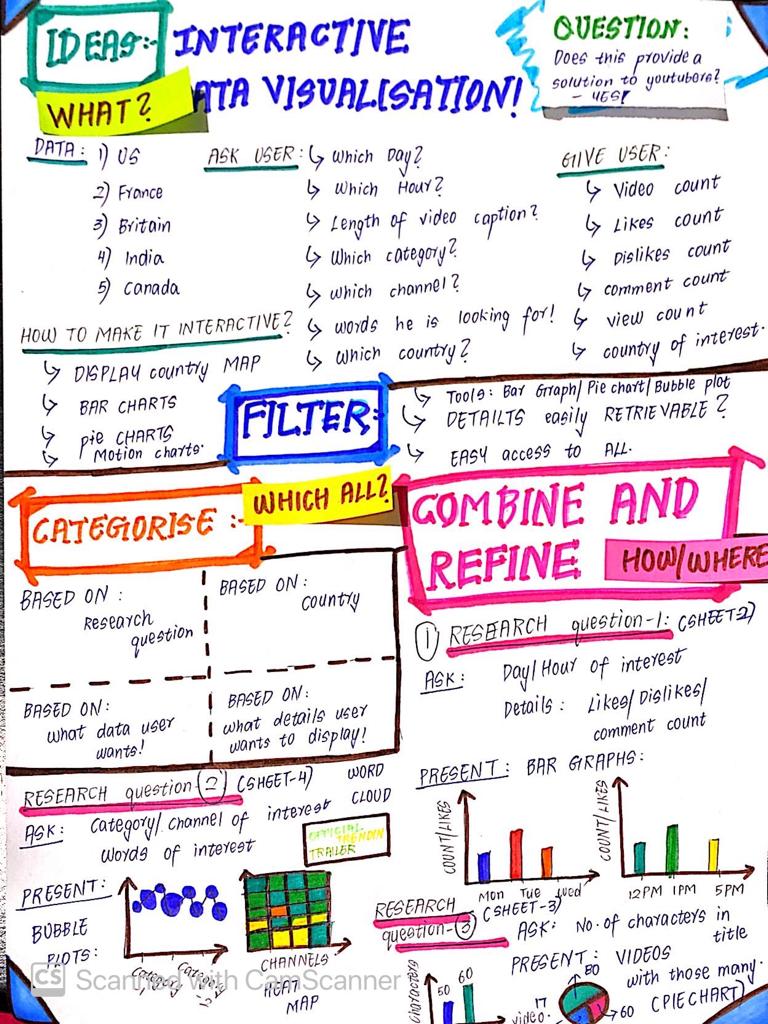 IDEAS:- INTERACTIVE
DATA VISUALISATION!
WHAT?
QUESTION:
Does this provide a
solution to youtubers?
- YES!
DATA: 1) US
2) France
3) Britain
4) India
5) Canada
ASK USER: ↳ Which Day?
↳ Which Hour?
↳ Length of video caption?
↳ Which category?
↳ which channel?
↳ words he is looking for!
↳ which country?
GIVE USER:
↳ Video count
↳ Likes count
↳ Dislikes count
↳ comment count
↳ view count
↳ country of interest.
HOW TO MAKE IT INTERACTIVE?
↳ DISPLAY country MAP
↳ BAR CHARTS
↳ pie CHARTS
↳ Motion charts.
FILTER:
↳ Tools: Bar Graph/Pie chart/Bubble plot
↳ DETAILTS easily RETRIEVABLE?
↳ EASY access to ALL.
CATEGORISE:-
WHICH ALL?
BASED ON:
Research
question
BASED ON:
country
BASED ON:
what data user
wants!
BASED ON:
what details user
wants to display!
COMBINE AND
REFINE
HOW/WHERE
1 RESEARCH question-1: (SHEET-2)
ASK: Day/Hour of interest
Details: Likes/Dislikes/
comment count
PRESENT: BAR GRAPHS:
COUNT/LIKES
Mon Tue Wed
COUNT/LIKES
12PM 1PM 5PM
RESEARCH question-2 (SHEET-4)
ASK: Category/channel of interest
Words of interest
WORD
CLOUD
OFFICIAL TRENDIN
TRAILER
PRESENT:
BUBBLE
PLOTS:
Category
Category
CHANNELS
HEAT
MAP
RESEARCH
question-3
(SHEET-3)
ASK: No. of characters in
title
PRESENT: VIDEOS
with those many.
(PIECHART)
Characters
50 60
video.
17
80
60
CS Scanned with CamScanner